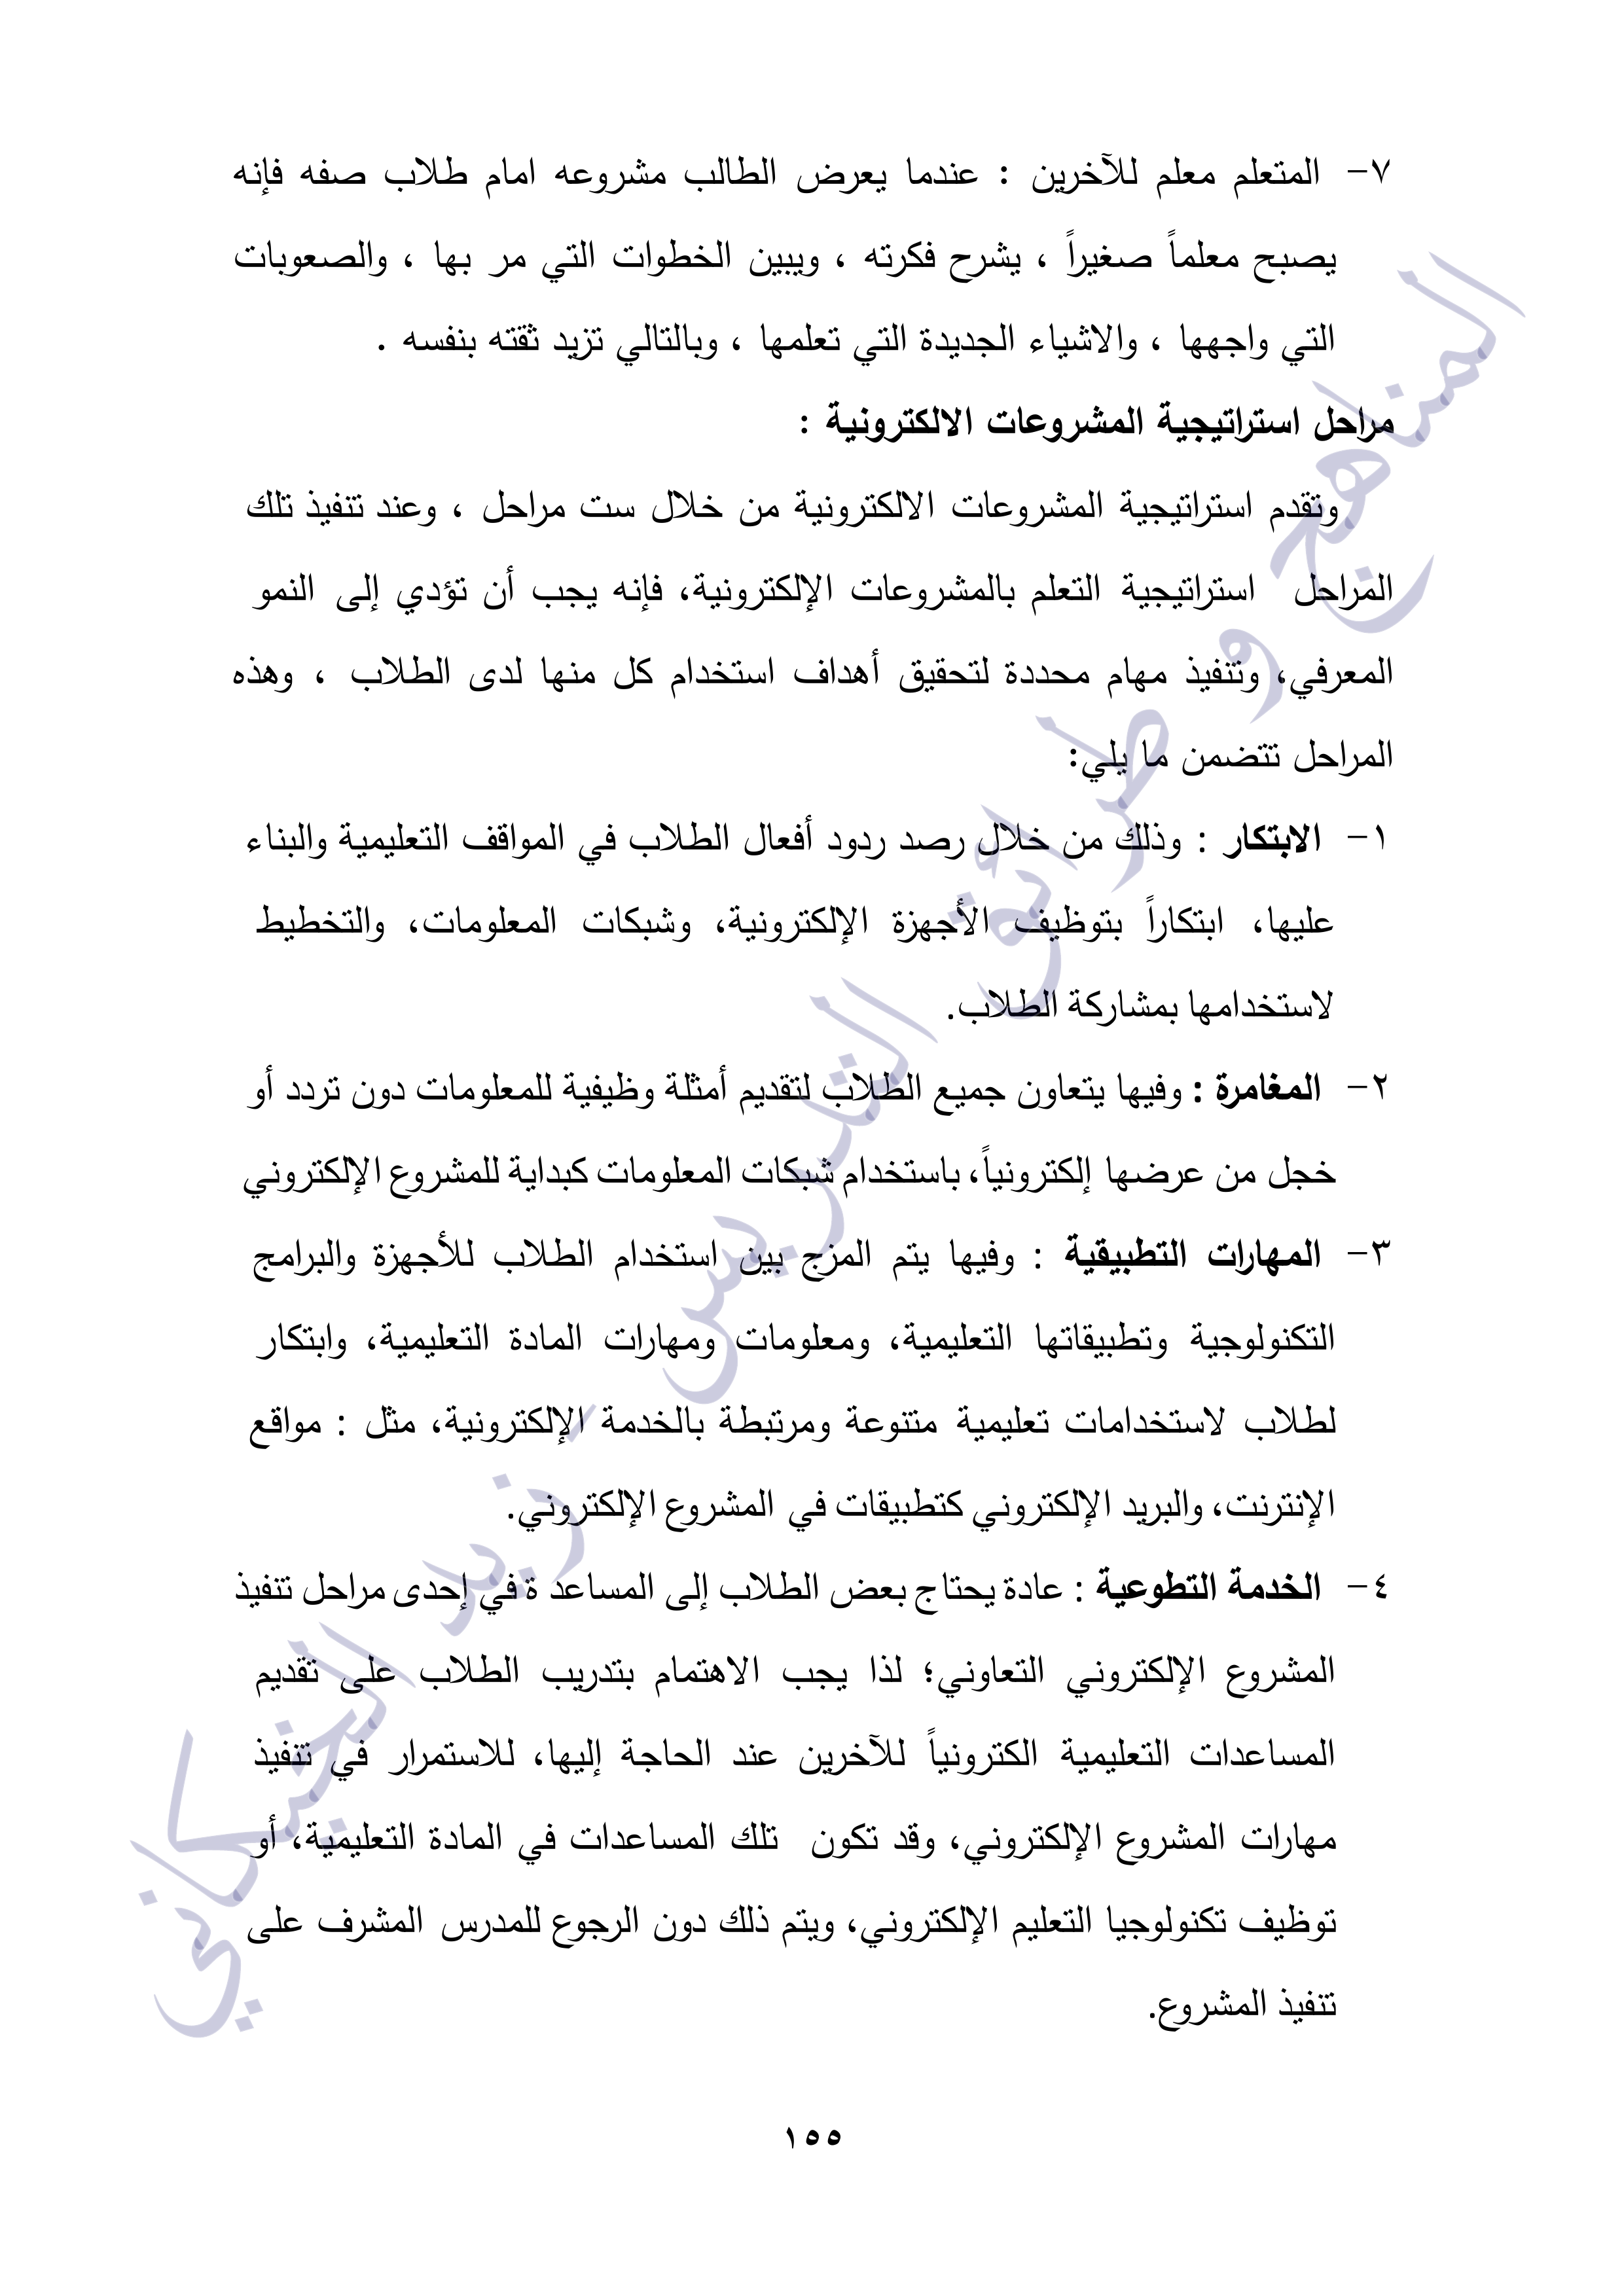 ٧- المتعلم معلم للآخرين : عندما يعرض الطالب مشروعه امام طلاب صفه فإنه
يصبح معلماً صغيراً ، يشرح فكرته ، ويبين الخطوات التي مر بها ، والصعوبات
التي واجهها ، والاشياء الجديدة التي تعلمها ، وبالتالي تزيد ثقته بنفسه .
مراحل استراتيجية المشروعات الالكترونية :
وتقدم استراتيجية المشروعات الالكترونية من خلال ست مراحل ، وعند تنفيذ تلك
المراحل استراتيجية التعلم بالمشروعات الإلكترونية، فإنه يجب أن تؤدي إلى النمو
المعرفي، وتنفيذ مهام محددة لتحقيق أهداف استخدام كل منها لدى الطلاب ، وهذه
المراحل تتضمن ما يلي:
١- الابتكار : وذلك من خلال رصد ردود أفعال الطلاب في المواقف التعليمية والبناء
عليها، ابتكاراً بتوظيف الأجهزة الإلكترونية، وشبكات المعلومات، والتخطيط
لاستخدامها بمشاركة الطلاب.
٢- المغامرة : وفيها يتعاون جميع الطلاب لتقديم أمثلة وظيفية للمعلومات دون تردد أو
خجل من عرضها إلكترونياً، باستخدام شبكات المعلومات كبداية للمشروع الإلكتروني
٣- المهارات التطبيقية : وفيها يتم المزج بين استخدام الطلاب للأجهزة والبرامج
التكنولوجية وتطبيقاتها التعليمية، ومعلومات ومهارات المادة التعليمية، وابتكار
لطلاب لاستخدامات تعليمية متنوعة ومرتبطة بالخدمة الإلكترونية، مثل : مواقع
الإنترنت، والبريد الإلكتروني كتطبيقات في المشروع الإلكتروني.
٤- الخدمة التطوعية : عادة يحتاج بعض الطلاب إلى المساعد ة في إحدى مراحل تنفيذ
المشروع الإلكتروني التعاوني؛ لذا يجب الاهتمام بتدريب الطلاب على تقديم
المساعدات التعليمية الكترونياً للآخرين عند الحاجة إليها، للاستمرار في تنفيذ
مهارات المشروع الإلكتروني، وقد تكون تلك المساعدات في المادة التعليمية، أو
توظيف تكنولوجيا التعليم الإلكتروني، ويتم ذلك دون الرجوع للمدرس المشرف على
تنفيذ المشروع.
١٥٥
المناهج و طرائق التدريس - زيد الخيكاني